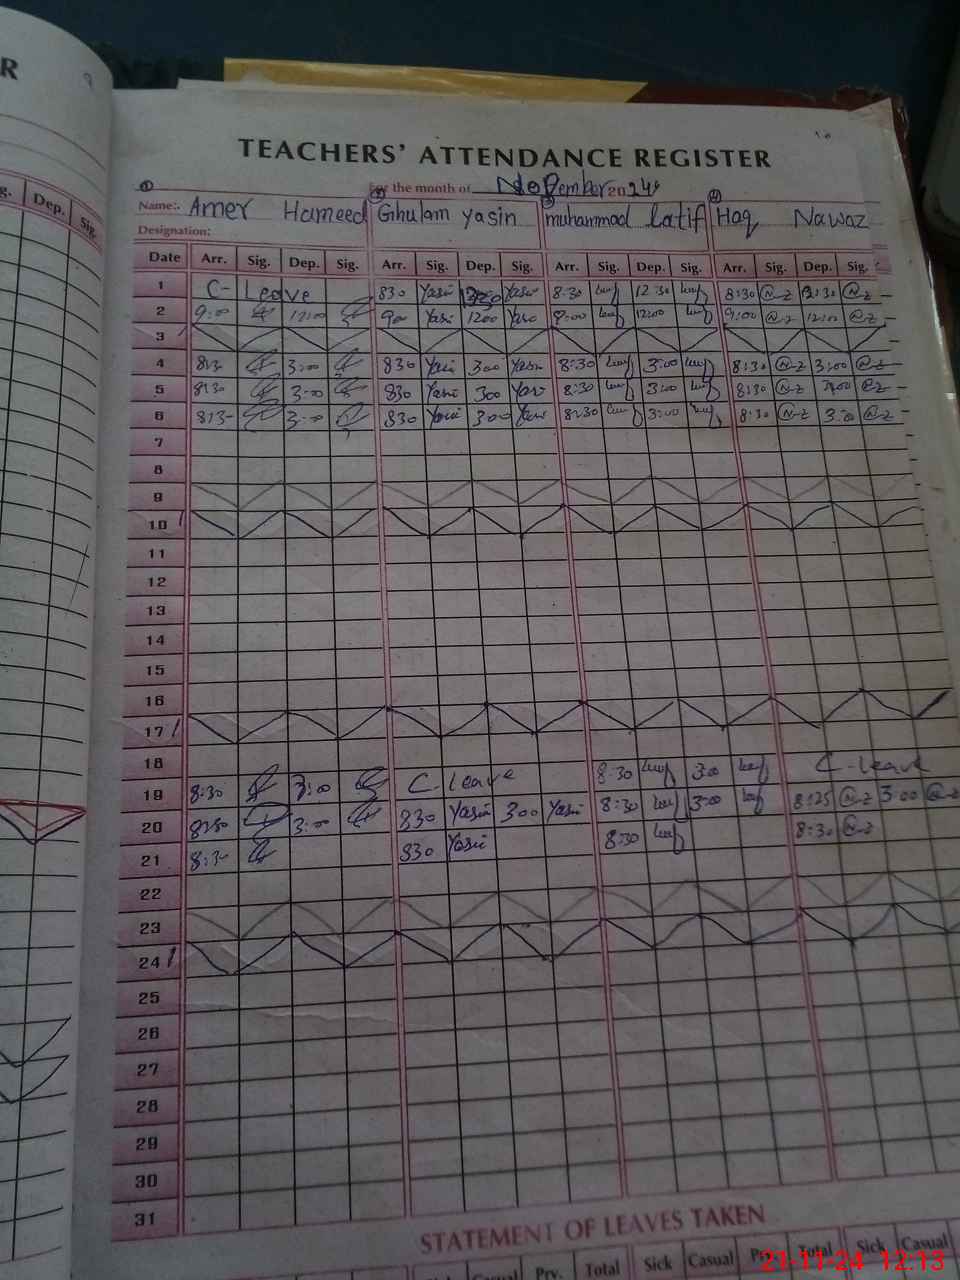 R
TEACHERS' ATTENDANCE REGISTER
① ② ③ ④
For the month of November 2024
Name:. Amer Hameed Ghulam yasin muhammad Latif Haq Nawaz
Designation:
g. Dep. Sig.
Date Arr. Sig. Dep. Sig. Arr. Sig. Dep. Sig. Arr. Sig. Dep. Sig. Arr. Sig. Dep. Sig.
1 C- Leave 830 Yasin Yasin 8:30 12:30 8:30 12:30
2 9:00 12:00 900 Yasi 1200 Yasi 9:00 12:00 9:00 12:00
3
4 830 3:00 830 Yasi 300 Yasin 8:30 3:00 8:30 3:00
5 8:30 3:00 830 Yasin 300 Yasi 8:30 3:00 8:30 3:00
6 3:00 830 Yasi 300 Yasi 8:30 3:00 8:30 3:00
7
8
9
10
11
12
13
14
15
16
17
18
19 8:30 3:00 C- Leave 8:30 300 C-Leave
20 8:30 3:00 830 Yasin 300 Yasin 8:30 3:00 8:25 3:00
21 8:30 830 Yasin 8:30 8:30
22
23
24
25
26
27
28
29
30
31
STATEMENT OF LEAVES TAKEN
Sick Casual Prv. Total Sick Casual Prv. Total Sick Casual
21-11-24 12:13